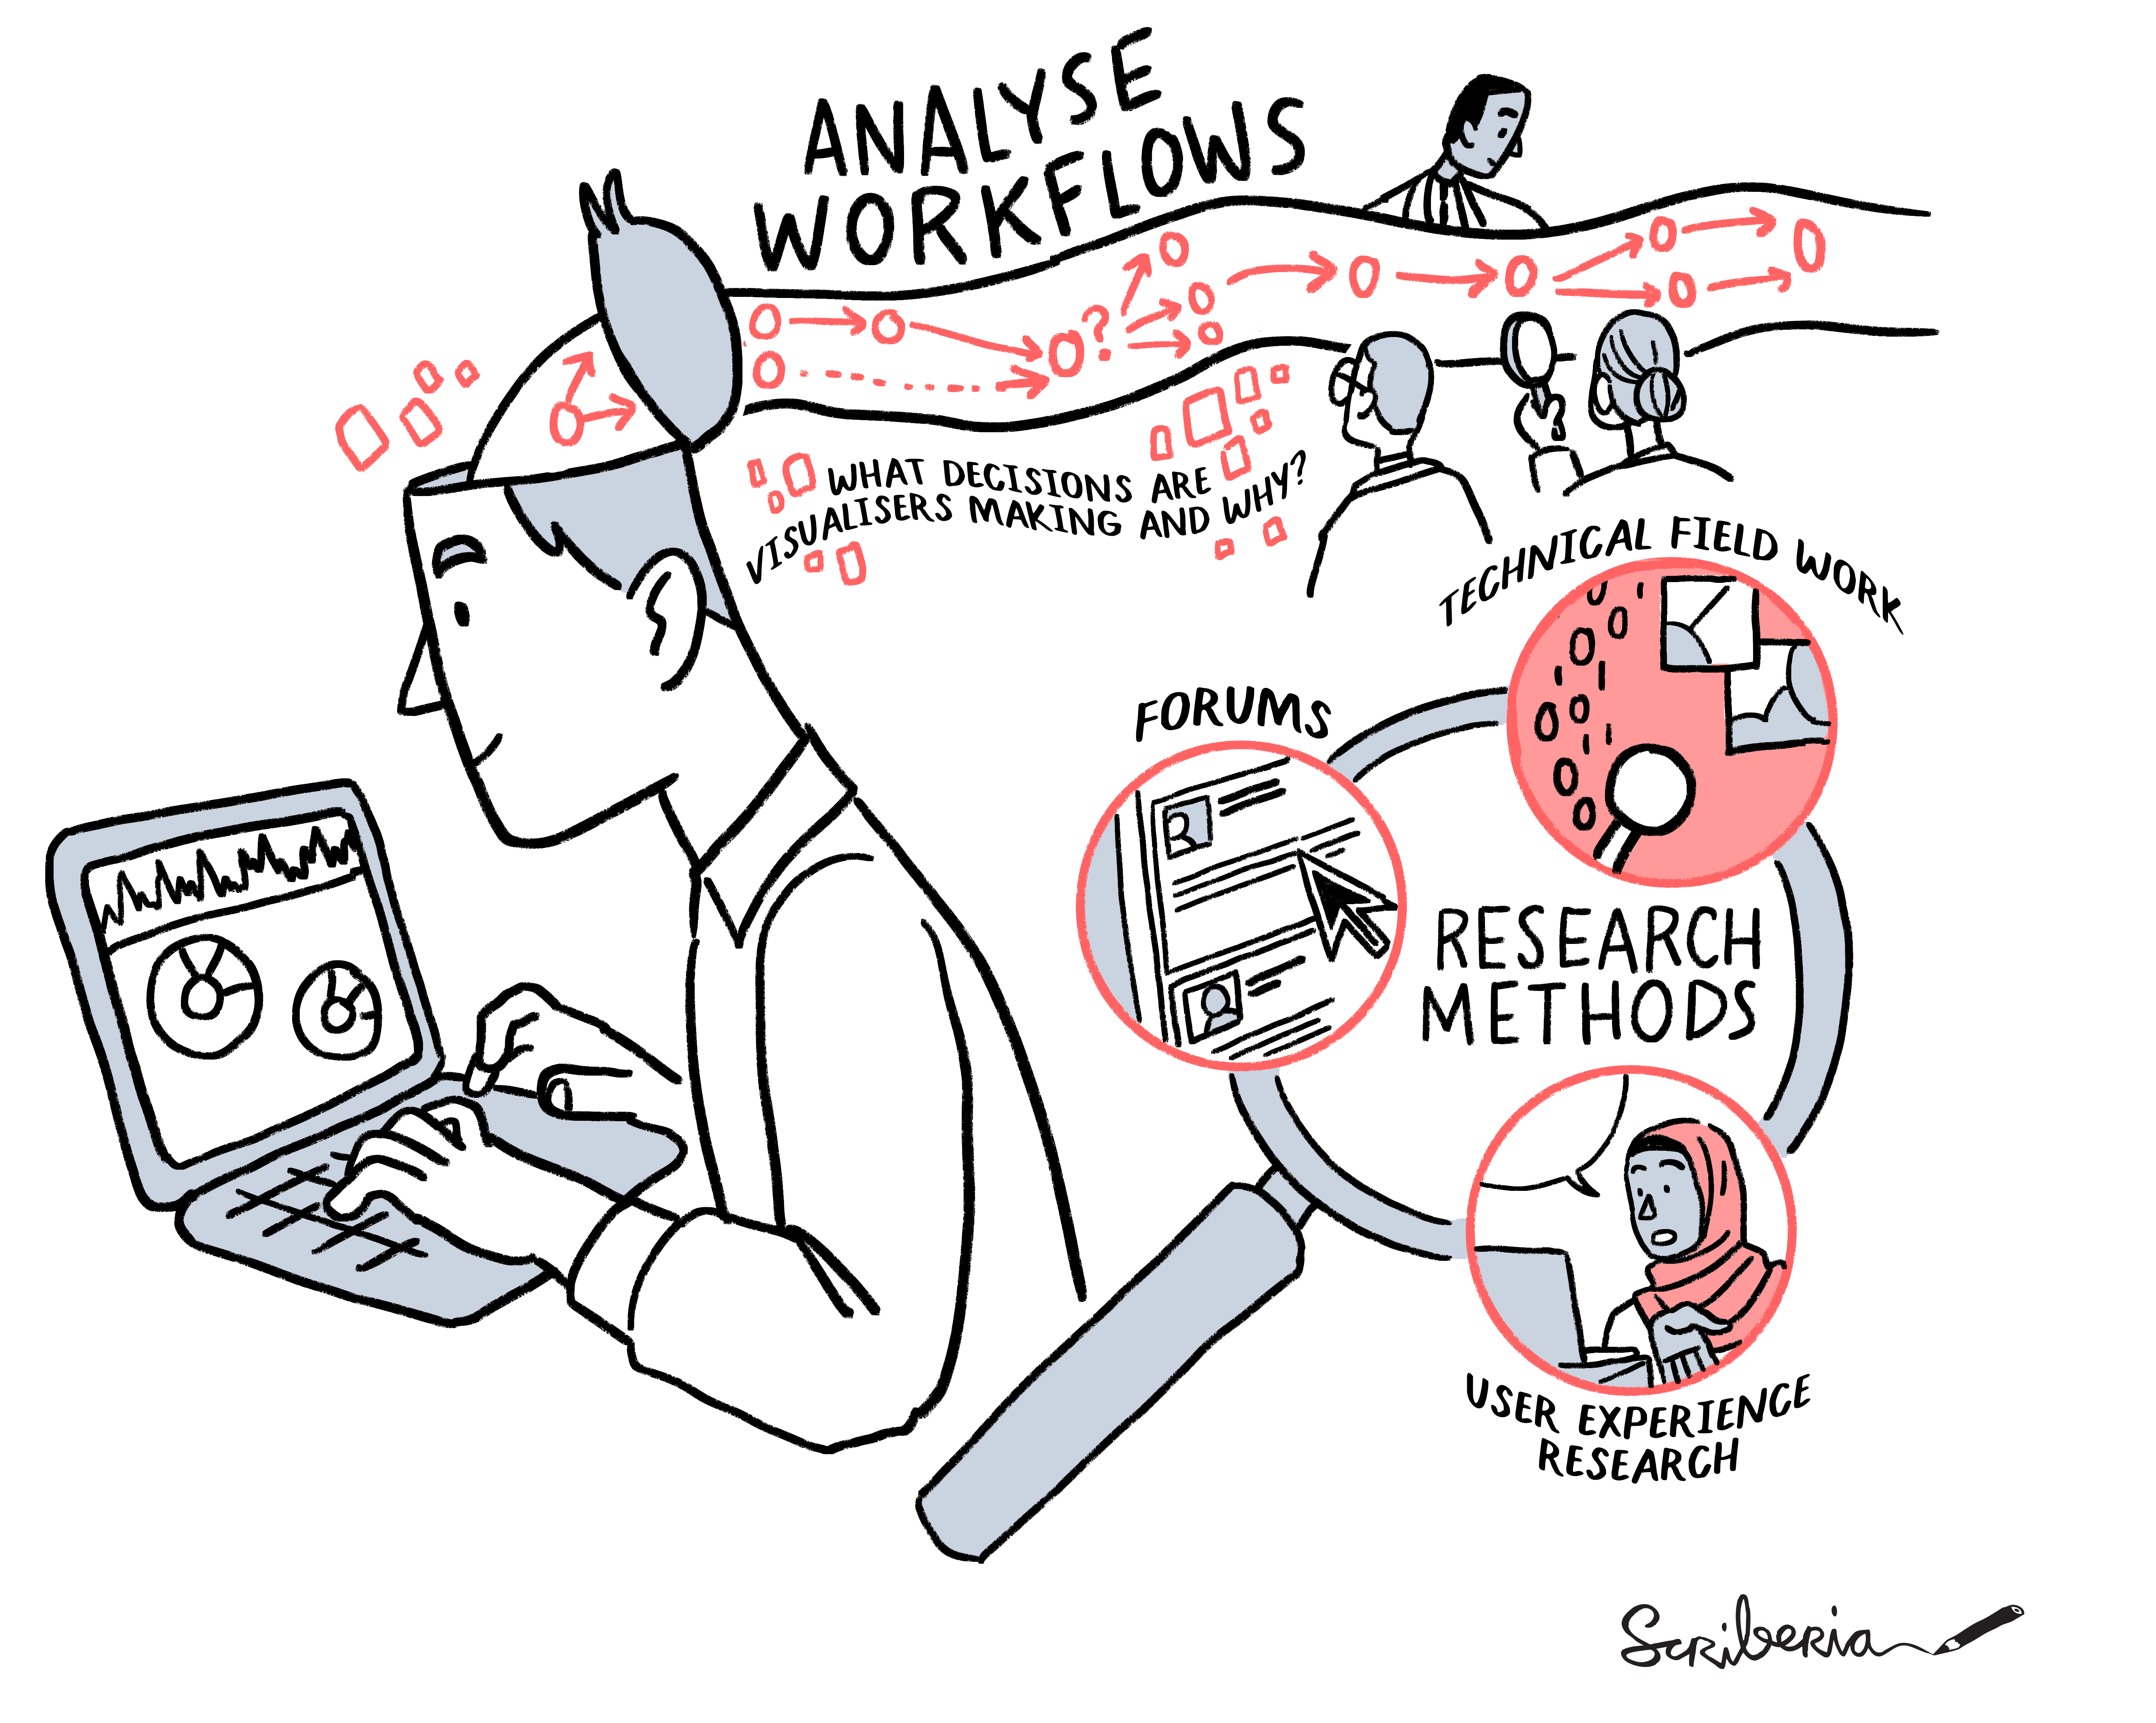 ANALYSE
WORKFLOWS
?
WHAT DECISIONS ARE
VISUALISERS MAKING AND WHY?
TECHNICAL FIELD WORK
FORUMS
RESEARCH
METHODS
USER EXPERIENCE
RESEARCH
Scriberia